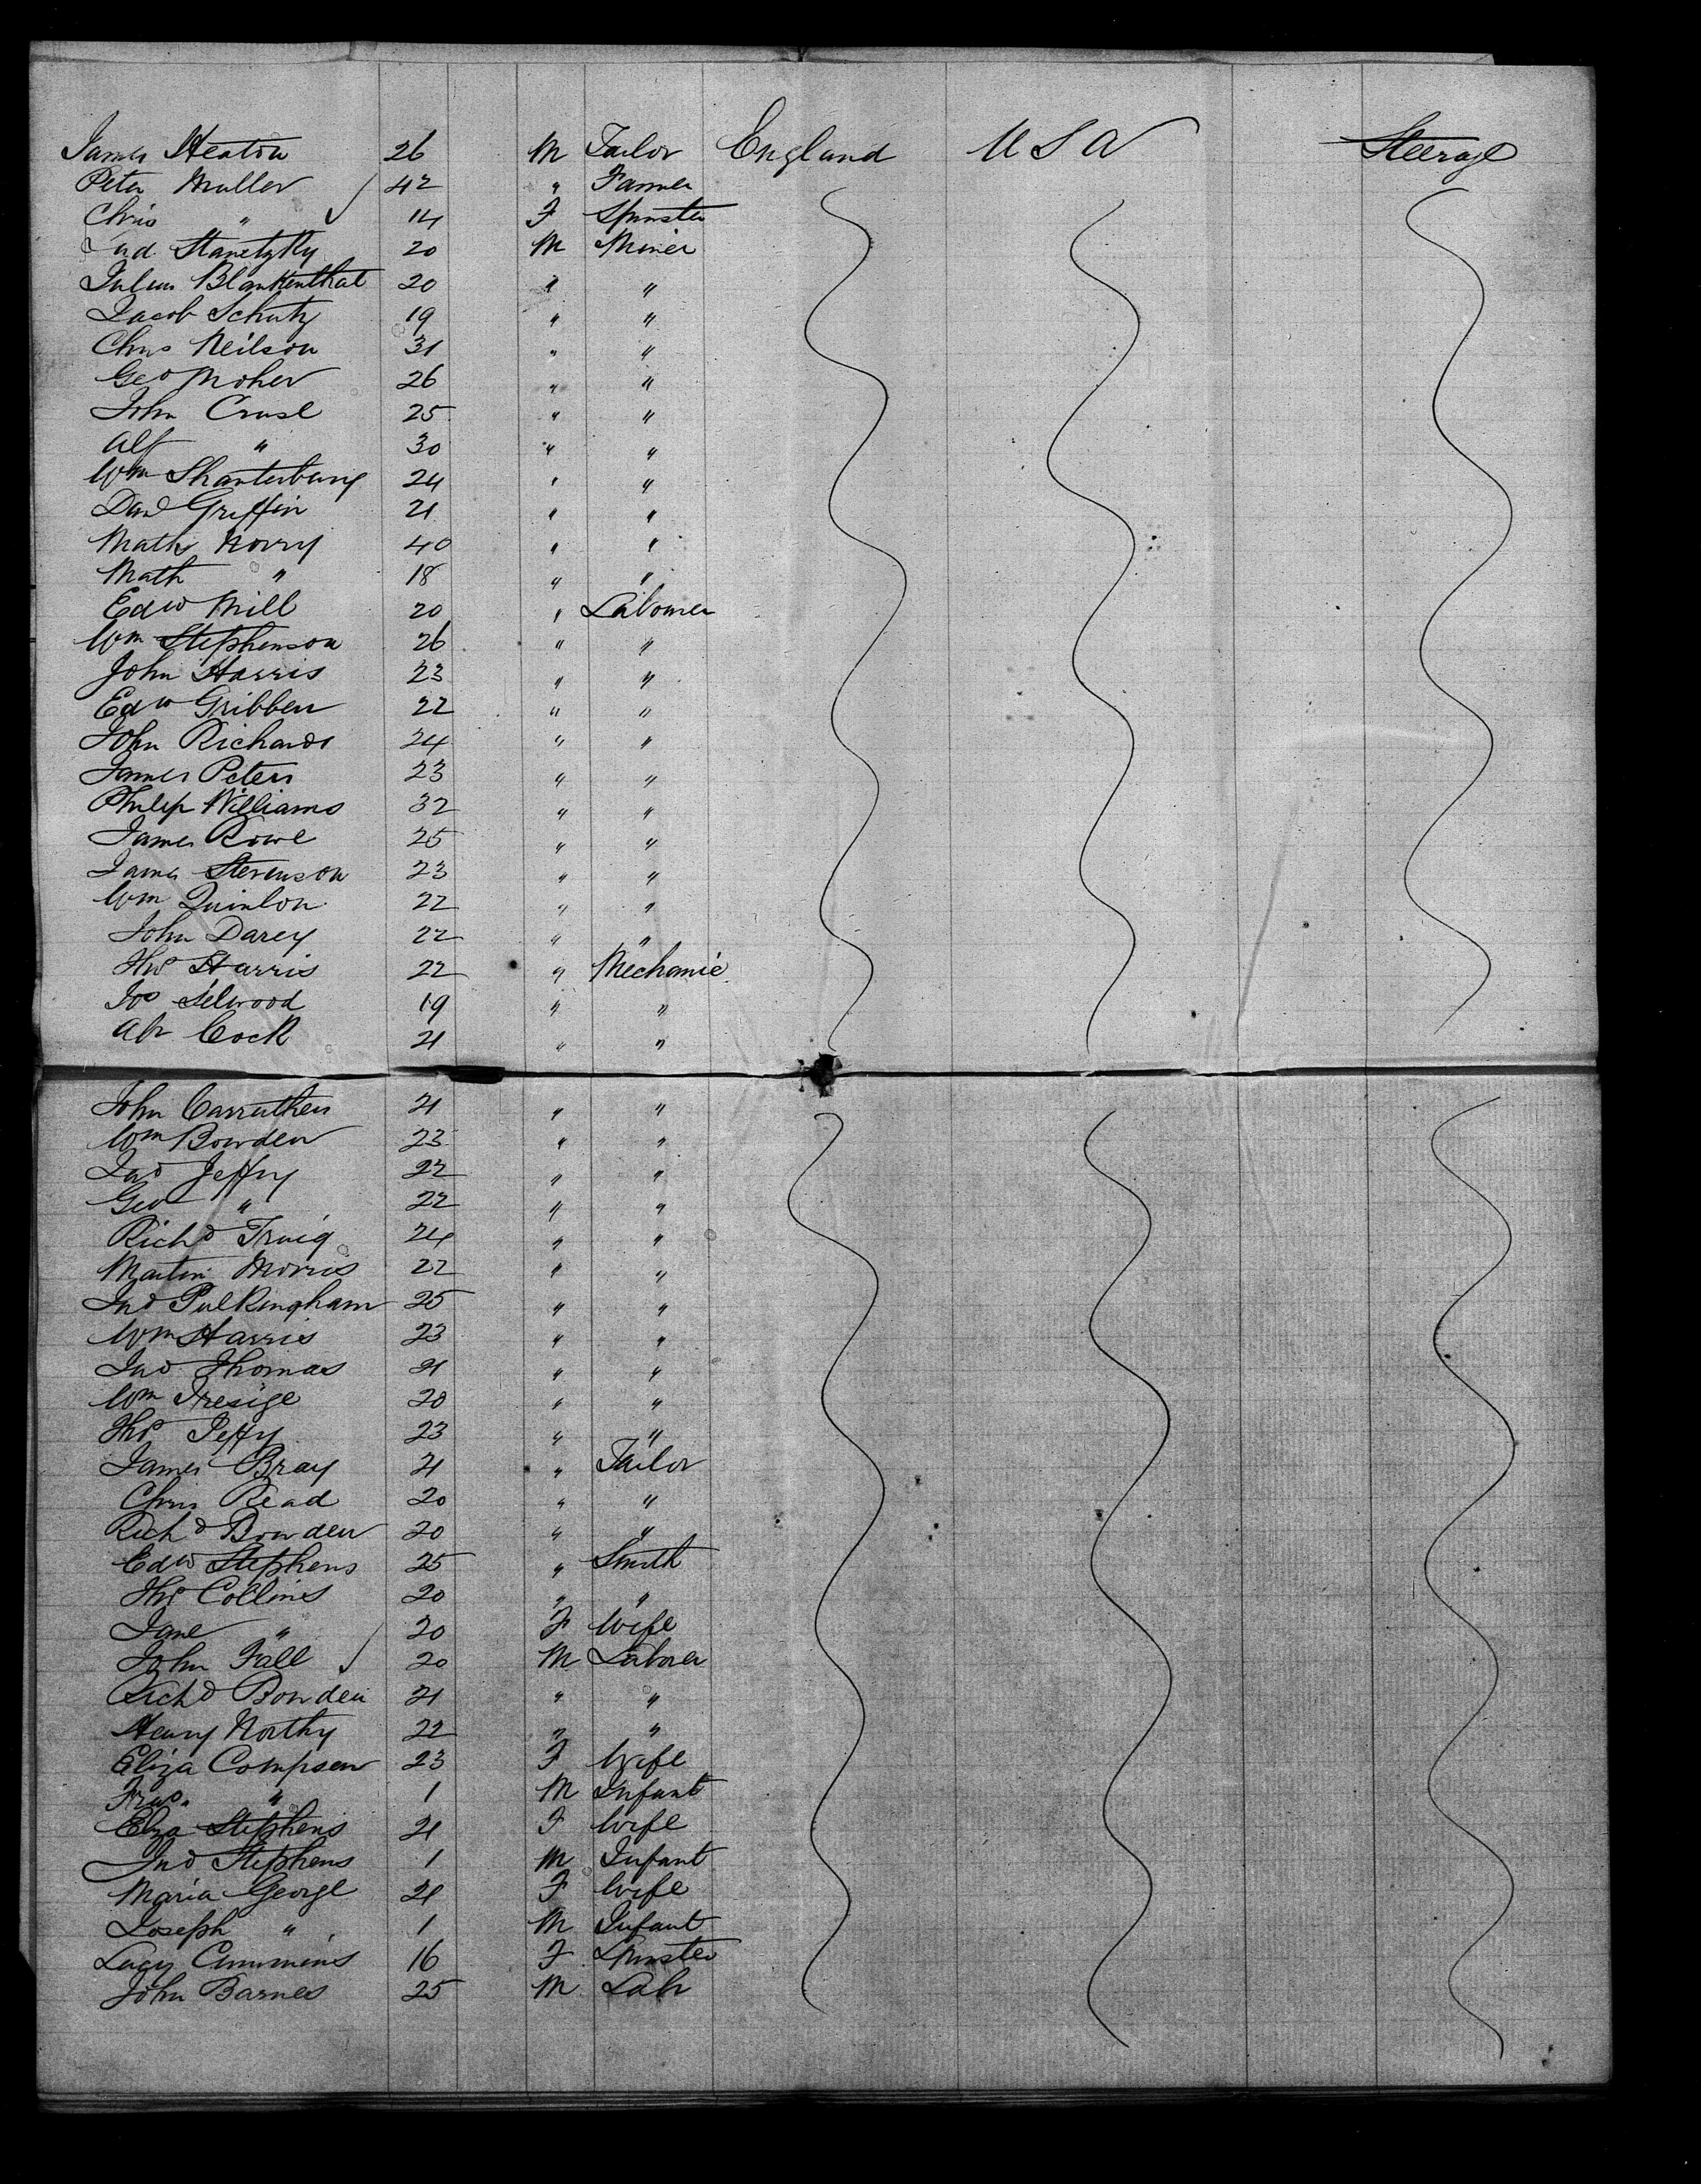 James Heaton 26 M Tailor England U S A Steerage
Peter Muller 42 " Farmer
Chris " 14 F Spinster
Stanetzky 20 M Miner
Julius Blankenthal 20 " "
Jacob Schutz 19 " "
Chris Neilson 31 " "
Geo Moher 26 " "
John Cruse 25 " "
Alf " 30 " "
Wm Shanterbury 24 " "
Davd Griffin 21 " "
Math Norry 40 " "
Math " 18 " "
Edw Mill 20 " Labourer
Wm Stephenson 26 " "
John Harris 23 " "
Edw Gribben 22 " "
John Richards 24 " "
James Peters 23 " "
Philip Williams 32 " "
James Rowe 25 " "
James Stevenson 23 " "
Wm Quinlon 22 " "
John Darcy 22 " "
Thos Harris 22 " Mechanic
Jos Selwood 19 " "
Abr Cock 21 " "
John Carruthers 21 " "
Wm Bowden 23 " "
Jno Jeffry 22 " "
Geo " 22 " "
Richd 24 " "
Martin Morris 22 " "
Jno Pulkingham 25 " "
Wm Harris 23 " "
Jno Thomas 21 " "
Wm Tresige 20 " "
Thos Jeffy 23 " "
James Bray 21 " Tailor
Chris Read 20 " "
Richd Bowden 20 " "
Edw Stephens 25 " Smith
Thos Collins 20 " "
Jane " 20 F Wife
John Fall 20 M Laborer
Richd Bowden 21 " "
Henry Northy 22 " "
Eliza Compson 23 F Wife
" 1 M Infant
Eliza Stephens 21 F Wife
Jno Stephens 1 M Infant
Maria George 21 F Wife
Joseph " 1 M Infant
Lucy Cummins 16 F Spinster
John Barnes 25 M Labr